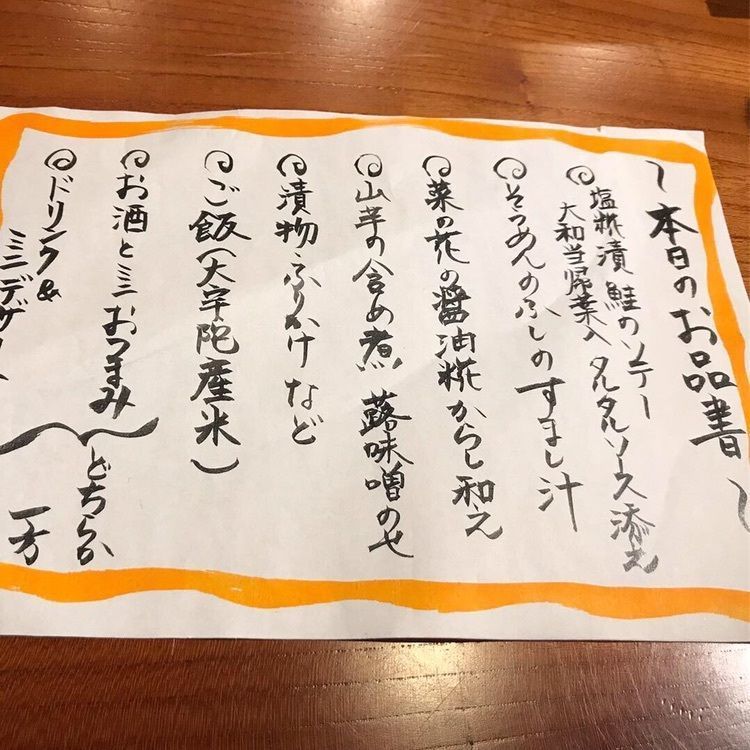 〜本日のお品書〜
◎塩糀漬 鮭のソテー
大和当帰葉入 タルタルソース添え
◎そうめんのふしのすまし汁
◎菜の花の醤油糀からし和え
◎山芋の含め煮 蕗味噌のせ
◎漬物・ふりかけなど
◎ご飯(大宇陀産米)
◎お酒とミニおつまみ
◎ドリンク&
ミニデザート
どちらか
一方